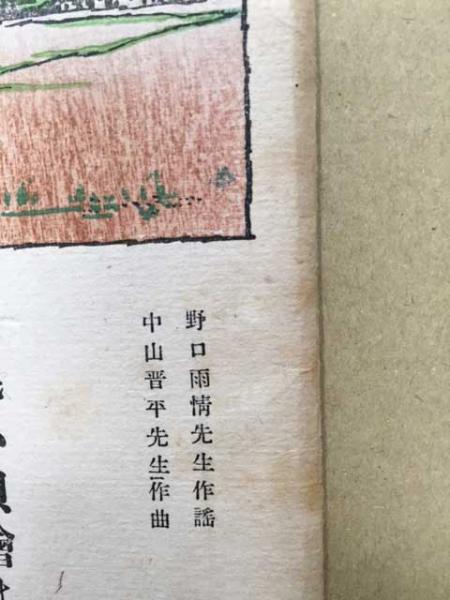 野口雨情先生作謡
中山晋平先生作曲